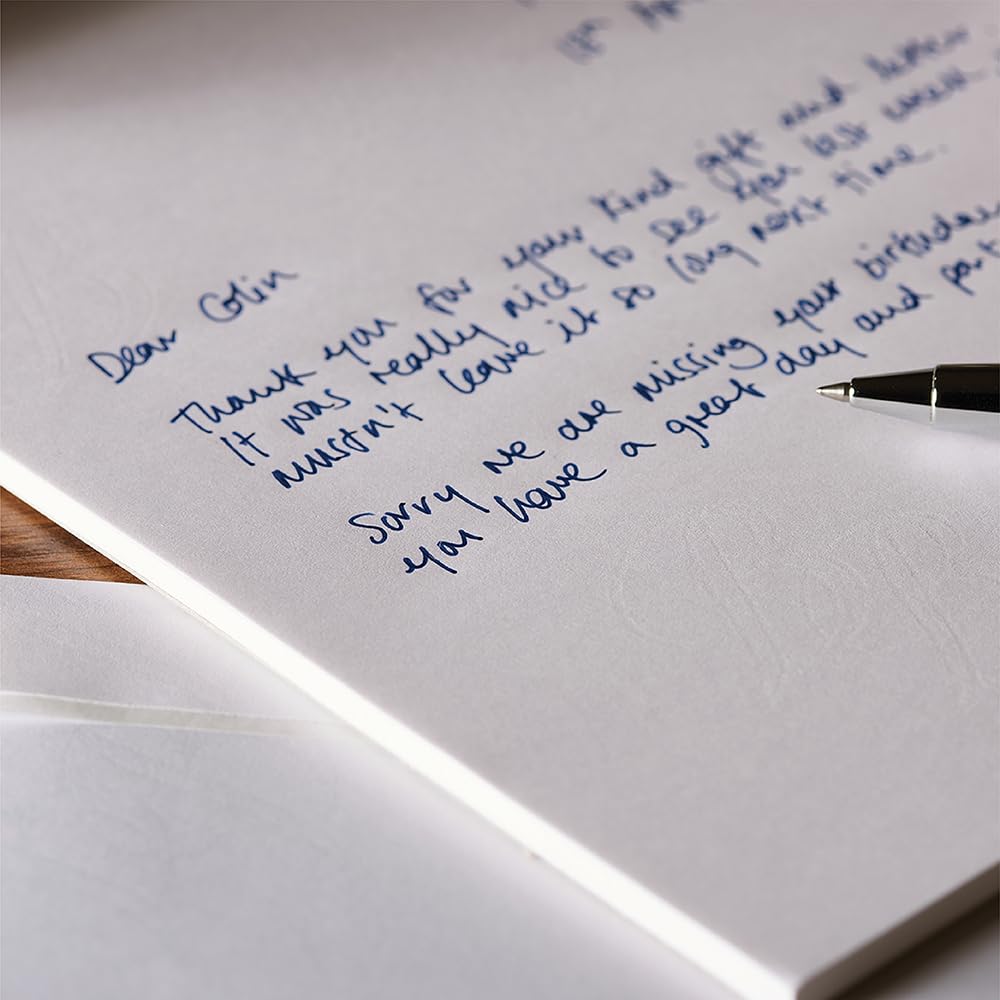 18th
Dear Colin
Thank you for your kind gift and letter.
It was really nice to see you last week
mustn't leave it so long next time.
Sorry we are missing your birthday
you have a great day and